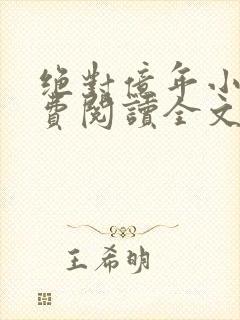 絕對億年小
費閱讀全文
王希明